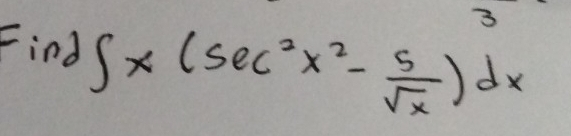 3
Find ∫ x (sec²x² - 5/√x) dx